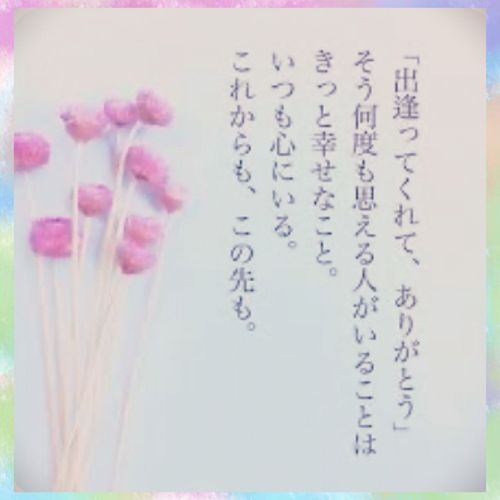 「出逢ってくれて、ありがとう」
そう何度も思える人がいることは
きっと幸せなこと。
いつも心にいる。
これからも、この先も。